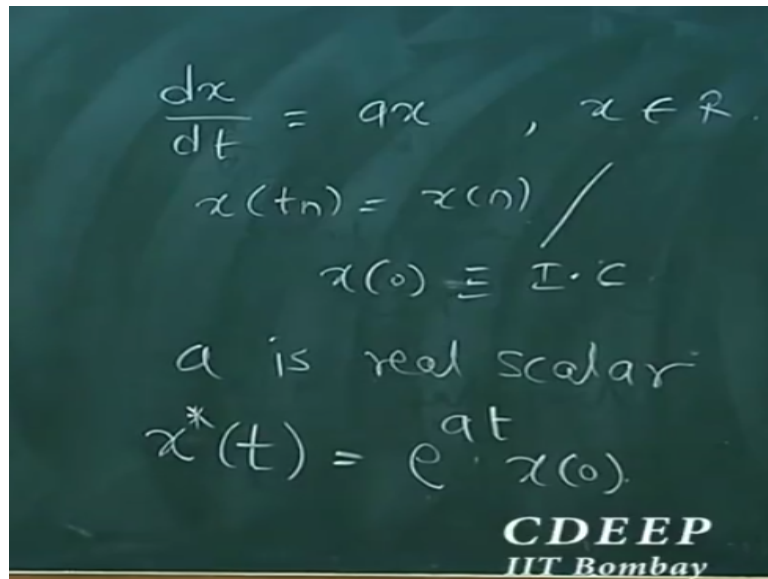 dx/dt = ax , x ∈ R.
x(tn) = x(n) /
x(0) ≡ I.C
a is real scalar
x*(t) = e^at . x(0).
CDEEP
IIT Bombay